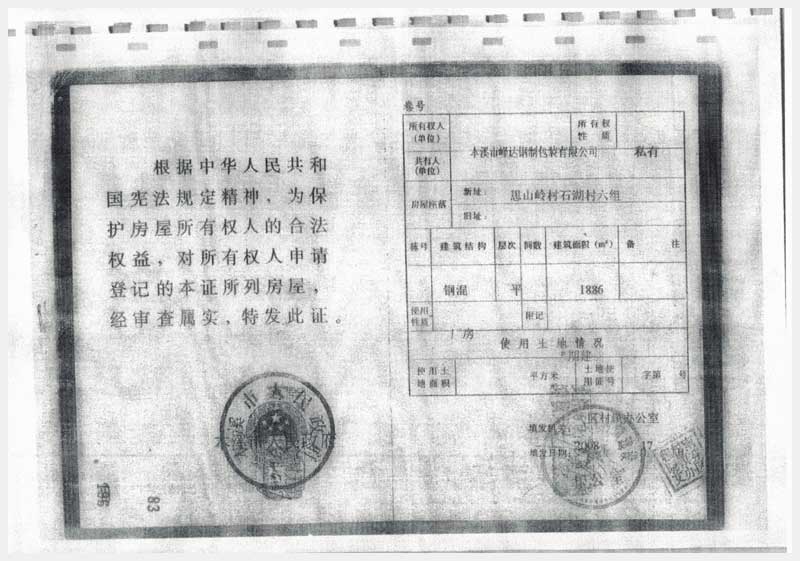 根据中华人民共和
国宪法规定精神，为保
护房屋所有权人的合法
权益，对所有权人申请
登记的本证所列房屋，
经审查属实，特发此证。
卷号
所有权人
(单位)
所有权
性质
共有人
(单位)
本溪市峰达钢制包装有限公司 私有
房屋座落
新址： 思山岭村石湖村六组
旧址：
栋号 建筑结构 层次 间数 建筑面积(m²) 备注
钢混 平 1886
使用
性质
厂房
附记
使用土地情况
使用土
地面积
平方米
土地使
用证号
字第 号
区村镇办公室
填发机关：
填发日期： 2008 17
83